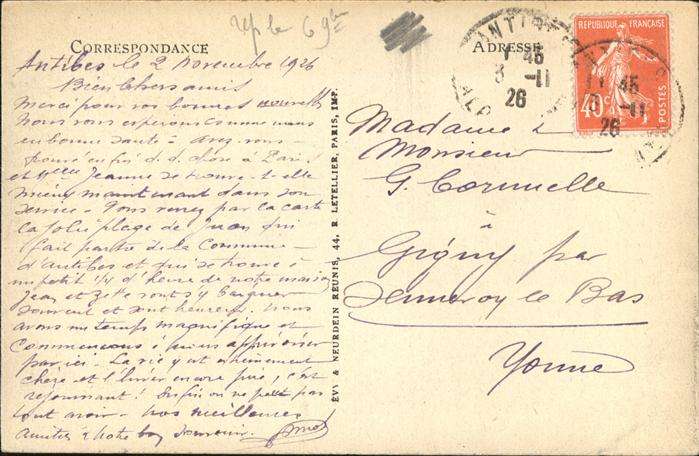 Rép le 6 9bre
CORRESPONDANCE
ADRESSE
Antibes le 2 Novembre 1926
Bien chers amis
Merci pour vos bonnes nouvelles
Nous vous espérons comme nous
en bonne santé - avez vous
trouvé enfin q.q. chose à Paris
et Melle Jeanne se trouve-t-elle
mieux maintenant dans son
service - Vous verrez par la carte
la jolie plage de Juan qui
fait partie de la Commune
d'Antibes et qui se trouve à
un petit 1/4 d'heure de notre maison
Jean et vont s'y baigner
souvent et sont heureux. Nous
avons un temps magnifique et
commençons à nous
par ici - La vie y est extrêmement
chère et l'hiver encore pire, c'est
réjouissant! Enfin on ne peut pas
tout avoir - Nos meilleures
amitiés & Notre bon souvenir
Madame &
Monsieur
G. Cornuelle
à
Gigny par
Sennevoy le Bas
Yonne
ÉVY & NEURDEIN RÉUNIS, 44, R. LETELLIER, PARIS, IMP.
ANTIBES
45
3 -11
26
RÉPUBLIQUE FRANÇAISE
40c
POSTES
45
-11
26